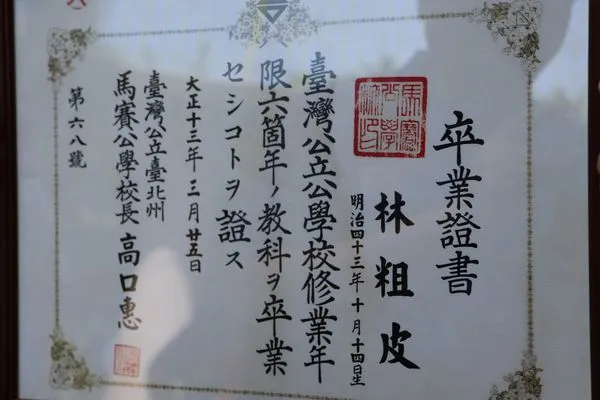 卒業證書
林粗皮
明治四十三年十月十四日生
臺灣公立公學校修業年
限六箇年ノ教科ヲ卒業
セシコトヲ證ス
大正十三年三月廿五日
臺灣公立臺北州
馬賽公學校長高口惠
第六八號